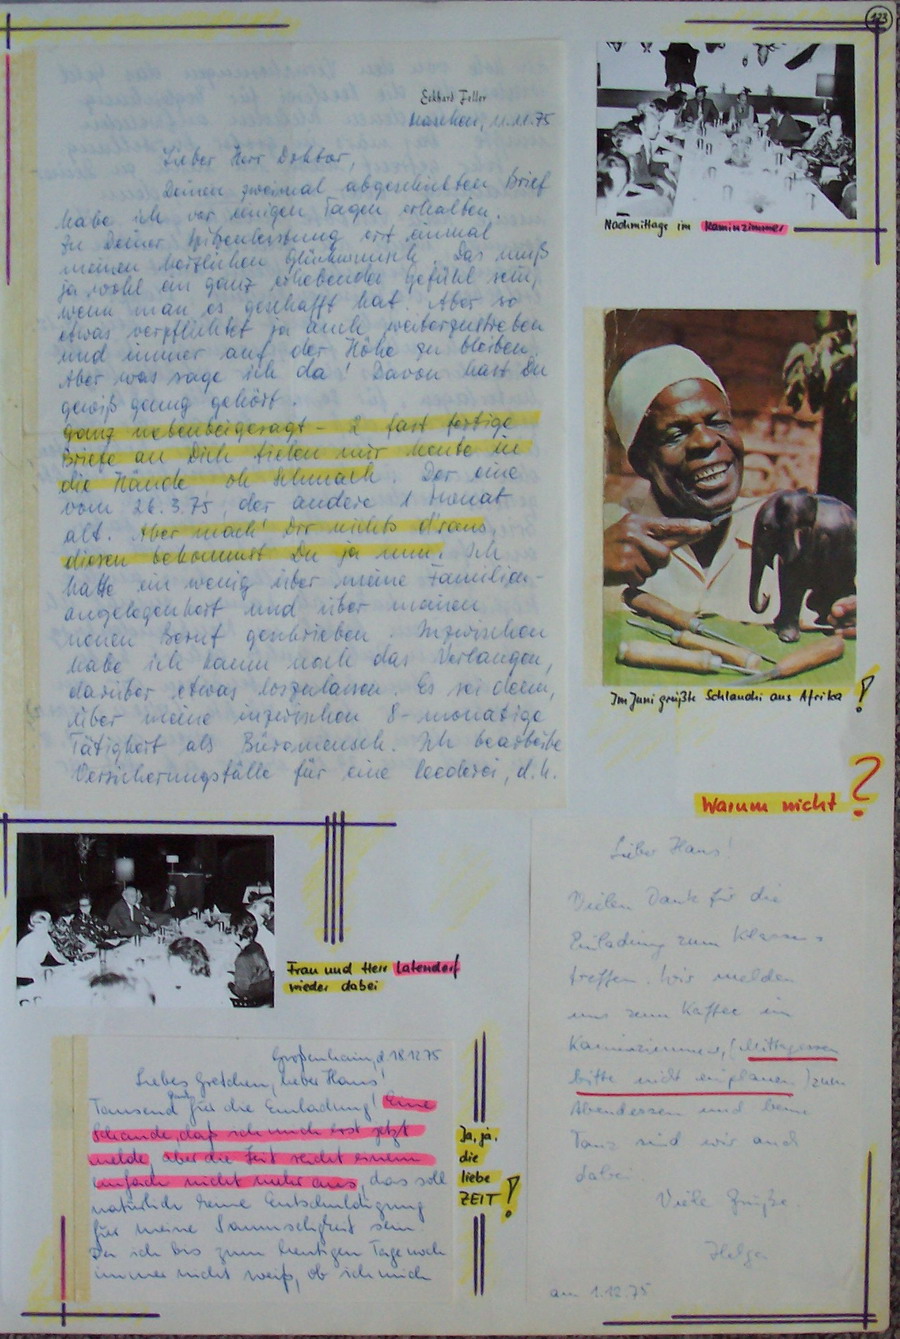 123
Eckhard Feller
11.11.75
Lieber Herr Doktor,
Deinen zweimal abgeschickten Brief
habe ich vor einigen Tagen erhalten.
Zu Deiner Spitzenleistung erst einmal
meinen herzlichen Glückwunsch. Das muß
ja wohl ein ganz erhebendes Gefühl sein,
wenn man es geschafft hat! Aber so
etwas verpflichtet ja auch weiterzustreben
und immer auf der Höhe zu bleiben.
Aber was sage ich da! Davon hast Du
gewiß genug gehört.
Ganz nebenbeigesagt – 2 fast fertige
Briefe an Dich fielen mir heute in
die Hände oh Schmach. Der eine
vom 26.3.75, der andere 1 Monat
alt. Aber mach' Dir nichts d'raus,
diesen bekommst Du ja nun. Ich
hatte ein wenig über meine Familien-
angelegenheit und über meinen
neuen Beruf geschrieben. Inzwischen
habe ich kaum noch das Verlangen,
darüber etwas loszulassen. Es sei denn,
über meine inzwischen 8-monatige
Tätigkeit als Büromensch. Ich bearbeite
Versicherungsfälle für eine Reederei, d.h.
Nachmittags im Kaminzimmer
Im Juni grüßte Schlaudi aus Afrika!
Warum nicht?
Frau und Herr Latendorf
wieder dabei
Großenhain, d 18.12.75
Liebes Gretchen, lieber Hans!
Tausend Dank für die Einladung! Eine
Schande, daß ich mich erst jetzt
melde, aber die Zeit reicht einem
einfach nicht mehr aus, das soll
natürlich keine Entschuldigung
für meine Saumseligkeit sein.
Da ich bis zum heutigen Tage noch
immer nicht weiß, ob ich mich
Ja, ja,
die
liebe
ZEIT!
Lieber Hans!
Vielen Dank für die
Einladung zum Klassen
treffen. Wir melden
uns zum Kaffee im
Kaminzimmer, (Mittagessen
bitte nicht einplanen) zum
Abendessen und beim
Tanz sind wir auch
dabei.
Viele Grüße.
Helga
am 1.12.75